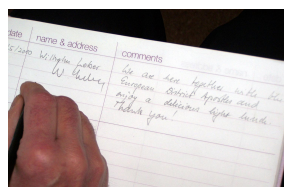 date name & address comments
Wilhelm Leber We are here together with the
W. Leber European District Apostles and
enjoy a delicious light lunch
Thank you